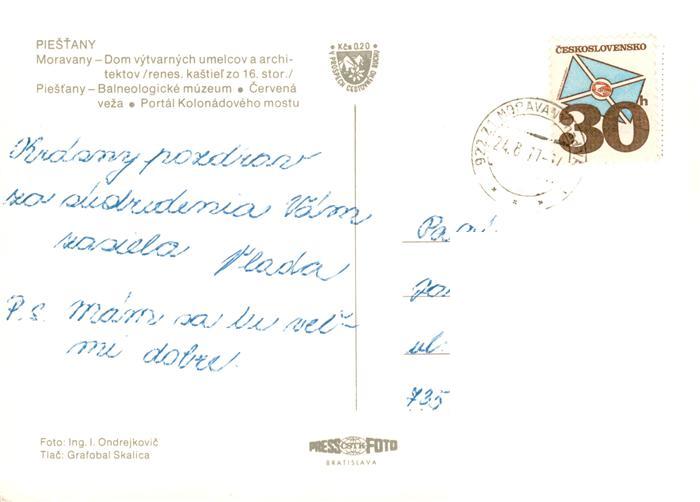 PIEŠŤANY
Moravany – Dom výtvarných umelcov a archi-
tektov /renes. kaštieľ zo 16. stor./
Piešťany – Balneologické múzeum ● Červená
veža ● Portál Kolonádového mostu
Kčs 0.20
ČESKOSLOVENSKO
30h
24.8.77-17
Krásny pozdrav
za sústredenia Vám
zasiela Vlada
P.s. mám sa tu veľ-
mi dobre
ul.
735
Foto: Ing. I. Ondrejkovič
Tlač: Grafobal Skalica
PRESS ČSTK FOTO
BRATISLAVA